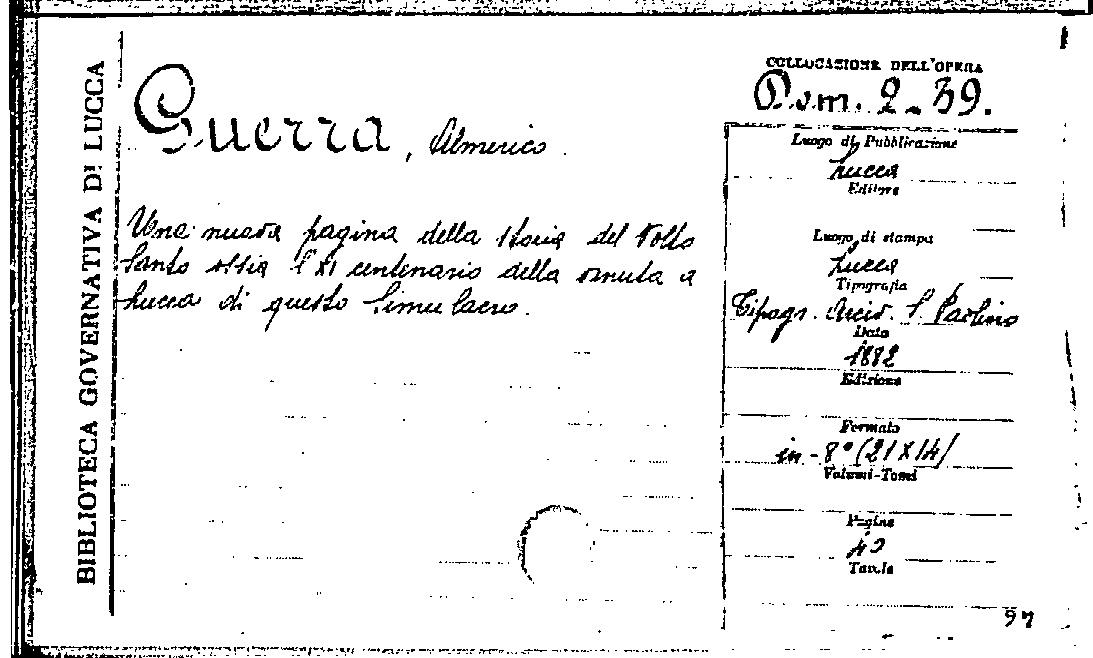 BIBLIOTECA GOVERNATIVA DI LUCCA
Guerra, Almerico.
Una nuova pagina della storia del Volto
Santo ossia l'XI centenario della venuta a
Lucca di questo Simulacro.
COLLOCAZIONE DELL'OPERA
Dom. 2-39.
Luogo di Pubblicazione
Lucca
Editore
Luogo di stampa
Lucca
Tipografia
Tipogr. Arciv. S. Paolino
Data
1882
Edizione
Formato
in-8° (21X14)
Volumi-Tomi
Pagine
Tavole
97